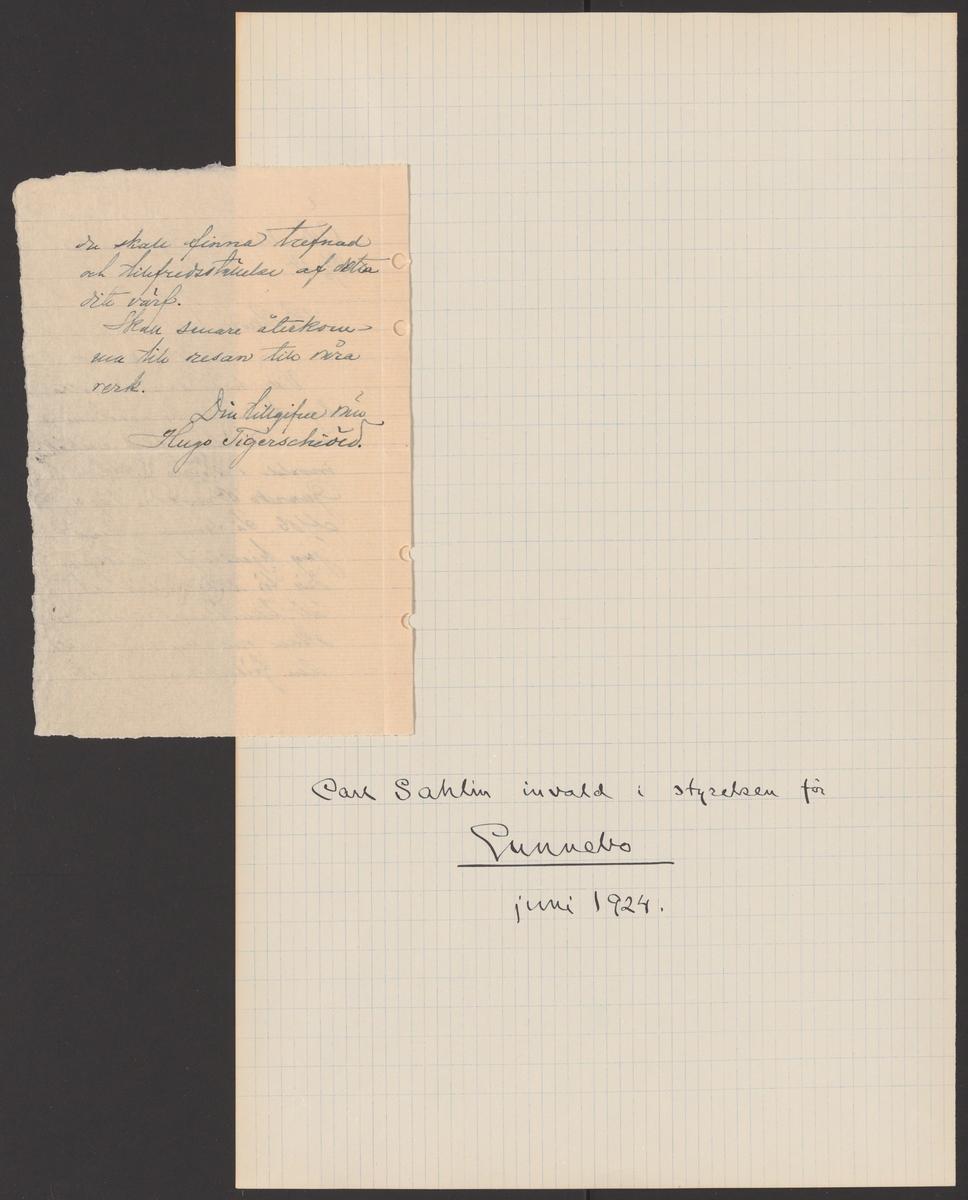 du skall finna trefnad
och tillfredsställelse af detta
ditt värf.
Skall senare återkom-
ma till resan till våra
verk.
Din tillgifne vän
Hugo Tigerschiöld.
Carl Sahlin invald i styrelsen för
Gunnebo
juni 1924.